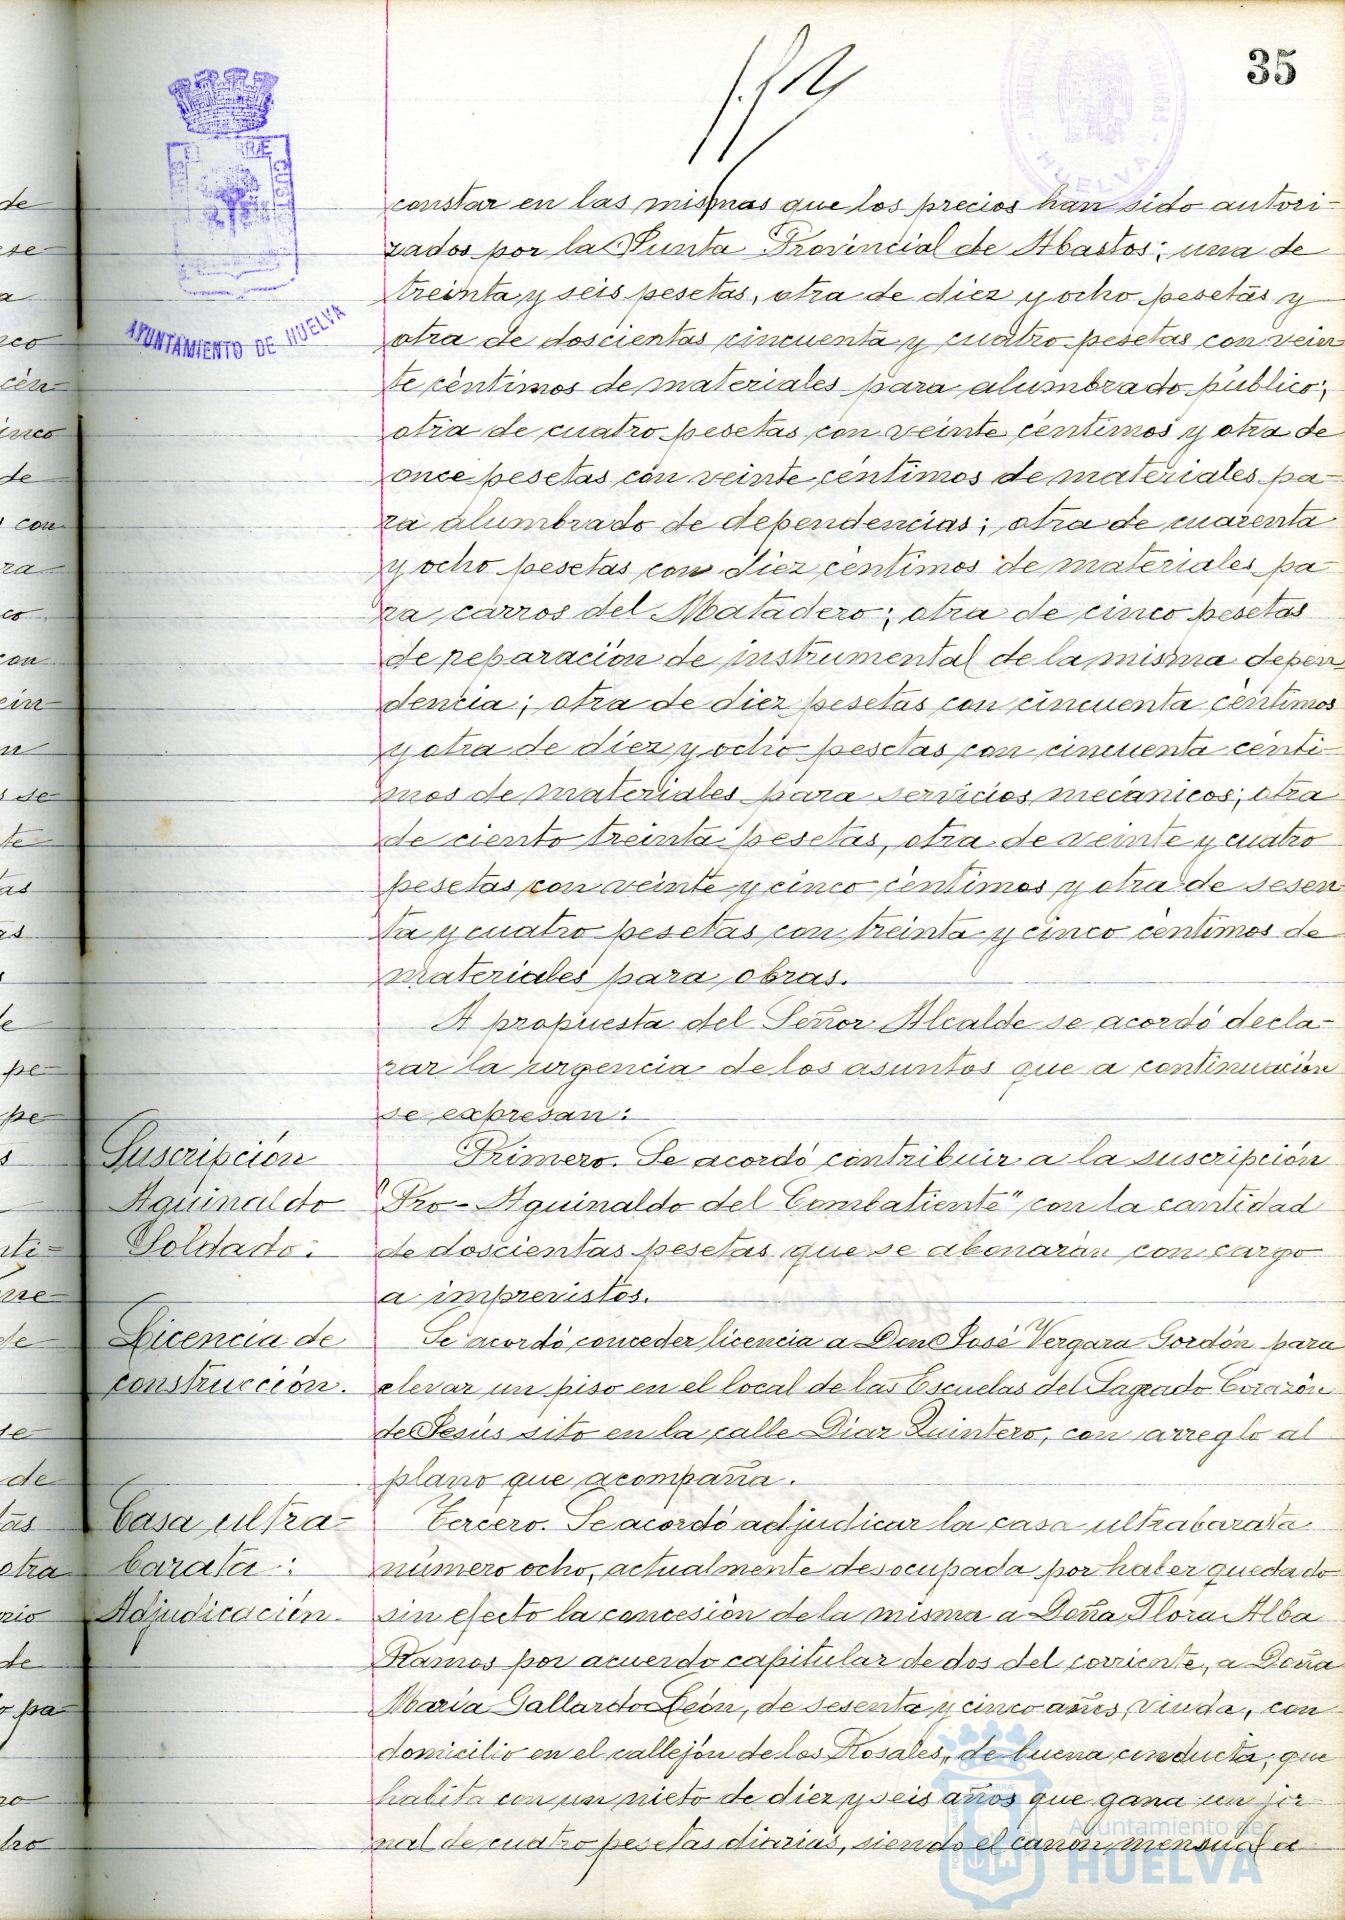 35
HUELVA
AYUNTAMIENTO DE HUELVA
constar en las mismas que los precios han sido autori-
zados por la Junta Provincial de Abastos; una de
treinta y seis pesetas, otra de diez y ocho pesetas y
otra de doscientas cincuenta y cuatro pesetas con vein-
te céntimos de materiales para alumbrado público;
otra de cuatro pesetas con veinte céntimos y otra de
once pesetas con veinte céntimos de materiales pa-
ra alumbrado de dependencias; otra de cuarenta
y ocho pesetas con diez céntimos de materiales pa-
ra carros del Matadero; otra de cinco pesetas
de reparación de instrumental de la misma depen-
dencia; otra de diez pesetas con cincuenta céntimos
y otra de diez y ocho pesetas con cincuenta cénti-
mos de materiales para servicios mecánicos; otra
de ciento treinta pesetas, otra de veinte y cuatro
pesetas con veinte y cinco céntimos y otra de sesen-
ta y cuatro pesetas con treinta y cinco céntimos de
materiales para obras.
A propuesta del Señor Alcalde se acordó decla-
rar la urgencia de los asuntos que a continuación
se expresan:
Suscripción
Aguinaldo
Soldado:
Primero. Se acordó contribuir a la suscripción
"Pro-Aguinaldo del Combatiente" con la cantidad
de doscientas pesetas que se abonarán con cargo
a imprevistos.
Licencia de
construcción.
Se acordó conceder licencia a Don José Vergara Gordón para
elevar un piso en el local de las Escuelas del Sagrado Corazón
de Jesús sito en la calle Díaz Quintero, con arreglo al
plano que acompaña.
Casa ultra-
barata:
Adjudicación.
Tercero. Se acordó adjudicar la casa ultrabarata
número ocho, actualmente desocupada por haber quedado
sin efecto la concesión de la misma a Doña Flora Alba
Ramos por acuerdo capitular de dos del corriente, a Doña
María Gallardo León, de sesenta y cinco años, viuda, con
domicilio en el callejón de los Rosales, de buena conducta, que
habita con un nieto de diez y seis años que gana un jor-
nal de cuatro pesetas diarias, siendo el canon mensual a
Ayuntamiento de
HUELVA